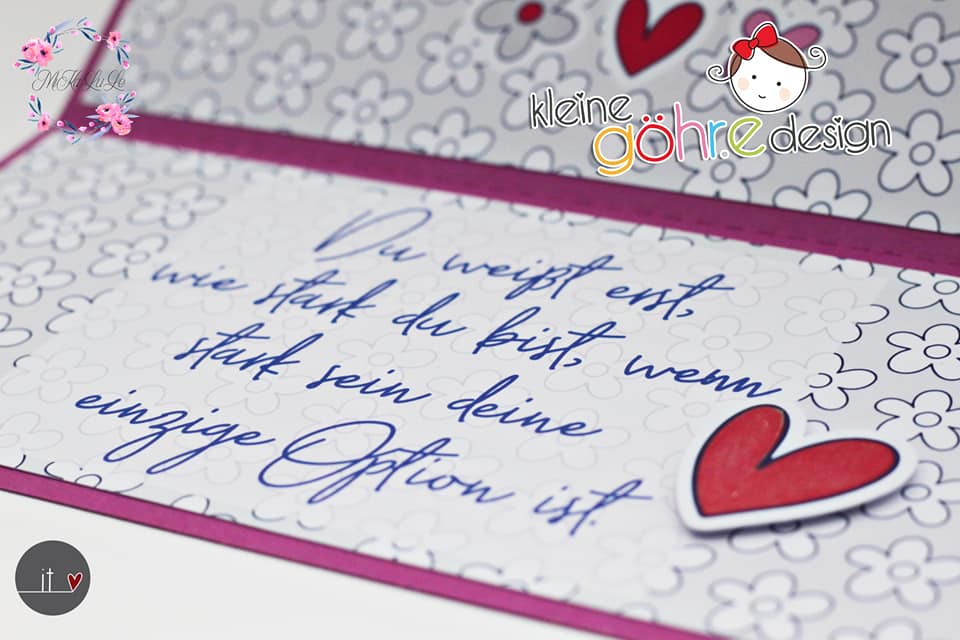 MiKaLuLe
kleine
göhr.e design
Du weißt erst,
wie stark du bist, wenn
stark sein deine
einzige Option ist.
it